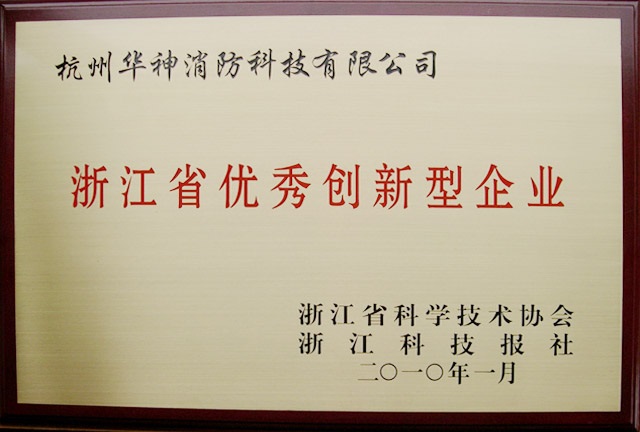 杭州华神消防科技有限公司
浙江省优秀创新型企业
浙江省科学技术协会
浙江科技报社
二〇一〇年一月